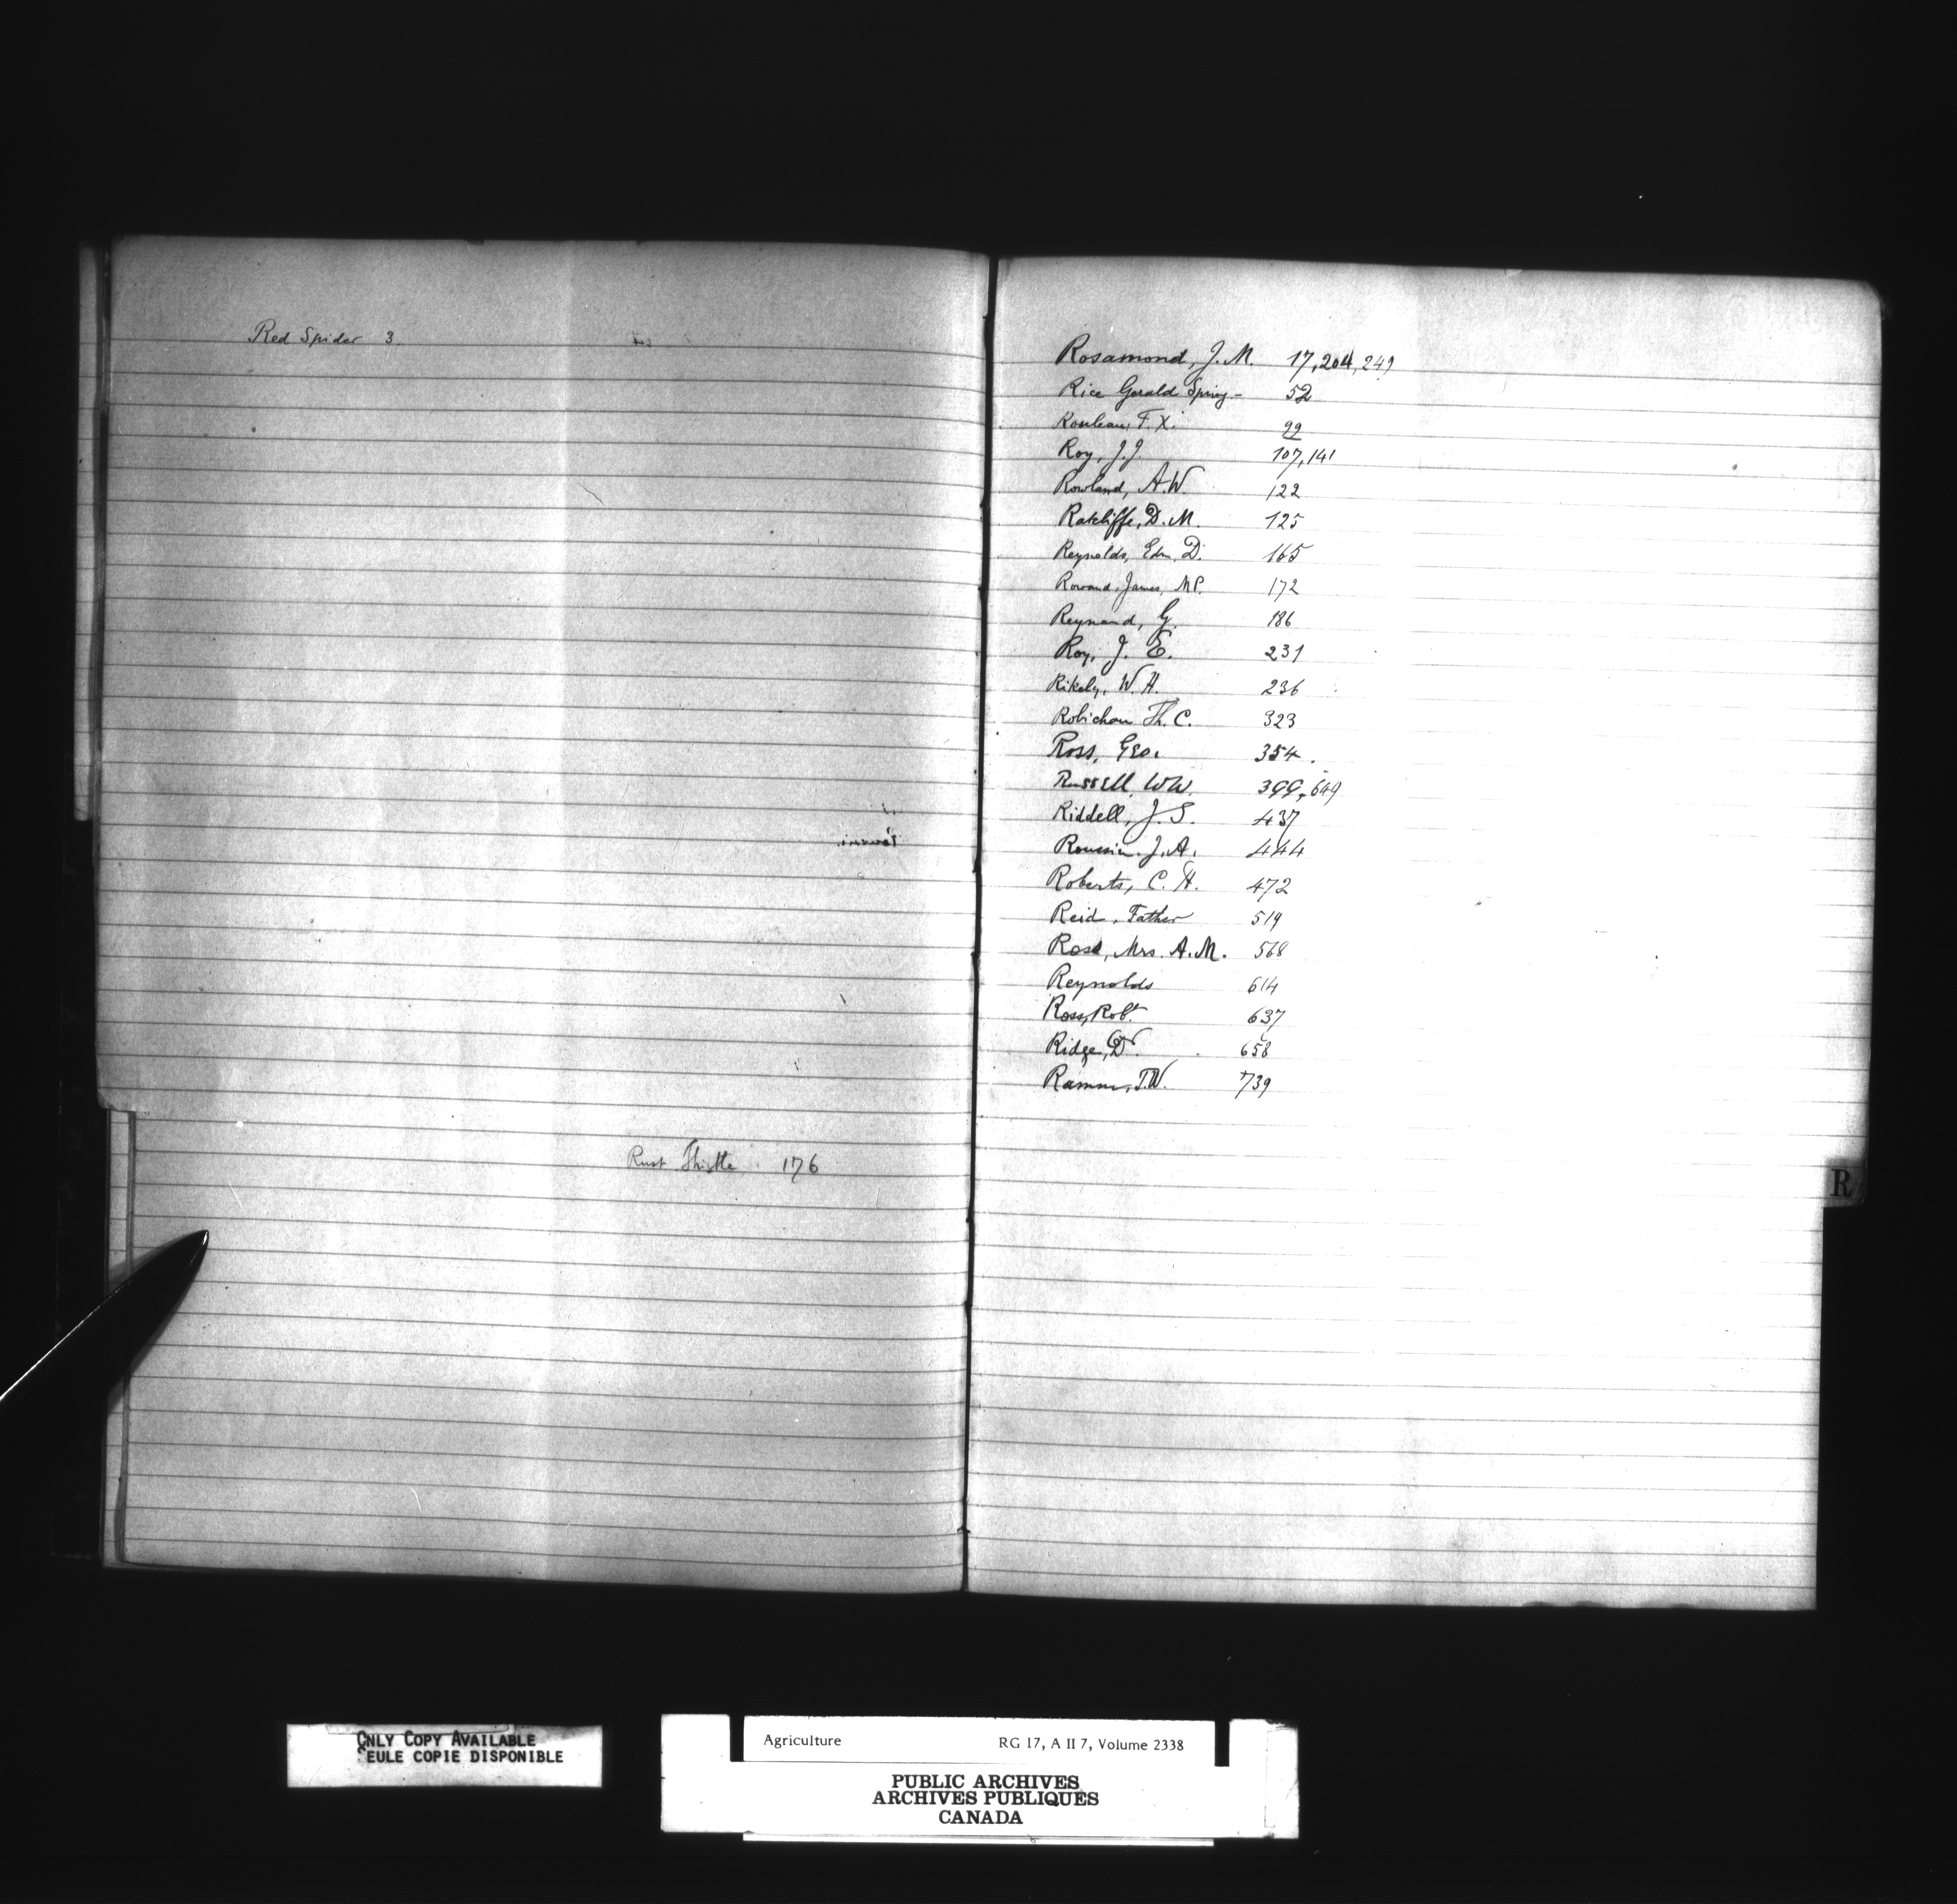 Red Spider 3.
Rust Thistle. 176
Rosamond, J. M. 17, 204, 249
Rice Gerald Spring - 52
Rouleau, F. X. 99
Roy, J. J. 107, 141
Rowland, A. W. 122
Ratcliffe, D. M. 125
Reynolds, Edm. D. 165
Rowand, James, M.P. 172
Reynaud, G. 186
Roy, J. E. 231
Rikely, W. H. 236
Robichau Th. C. 323
Ross, Geo. 354.
Russell, W W. 399, 649
Riddell, J. S. 437
Roussin. J. A. 444
Roberts, C. H. 472
Reid, Father 519
Ross, Mrs. A. M. 568
Reynolds 614
Ross, Robt. 637
Ridge, Dr. 658
J. W. 739
R
ONLY COPY AVAILABLE
SEULE COPIE DISPONIBLE
Agriculture RG 17, A II 7, Volume 2338
PUBLIC ARCHIVES
ARCHIVES PUBLIQUES
CANADA